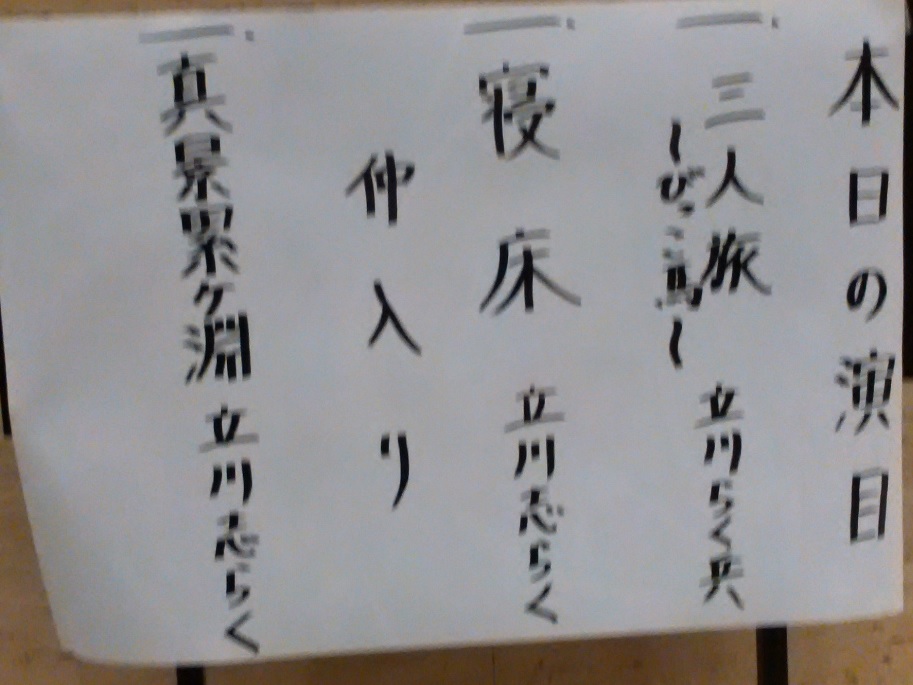 本日の演目
一、三人旅
〜びっこ馬〜
立川らく兵
一、寝床 立川志らく
仲入り
一、真景累ケ淵 立川志らく